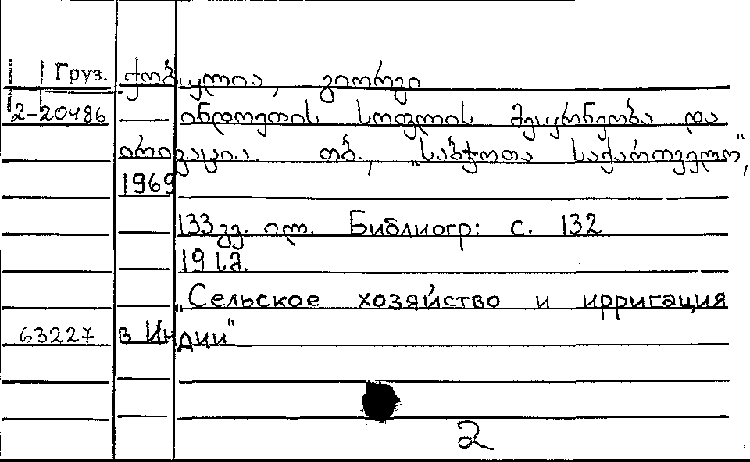 Груз. ქობულია, გიორგი
2-20486 ინდოეთის სოფლის მეურნეობა და
ირიგაცია. თბ., „საბჭოთა საქართველო“,
1969
133 გვ. ილ. Библиогр: с. 132
19 სმ.
„Сельское хозяйство и ирригация
63227 в Индии“
2